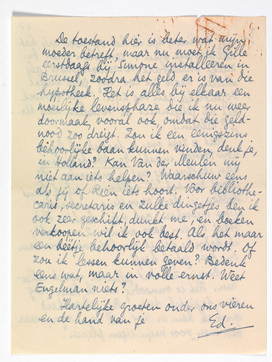 De toestand hier is beter wat mijn
moeder betreft, maar nu moet ik Gille
eerstdaags bij Simone installeeren in
Brussel, zoodra het geld er is van die
hypotheek. Het is alles bij elkaar een
moeilijke levensphaze die ik nu weer
doormaak, vooral ook omdat die geld-
nood zoo dreigt. Zou ik een eenigszins
behoorlijke baan kunnen vinden, denk je,
in Holland? Kan Van der Meulen mij
niet aan iets helpen? Waarschuw eens
als jij of Rein iets hoort. Voor bibliothe-
caris, secretaris en zulke dingetjes ben ik
ook zeer geschikt, dunkt me, en boeken
verkoopen wil ik ook best. Als het maar
een beetje behoorlijk betaald wordt. Of
zou ik lessen kunnen geven? Bedenk
eens wat, maar in volle ernst. Weet
Engelman niets?
Hartelijke groeten onder ons vieren
en de hand van je
Ed.